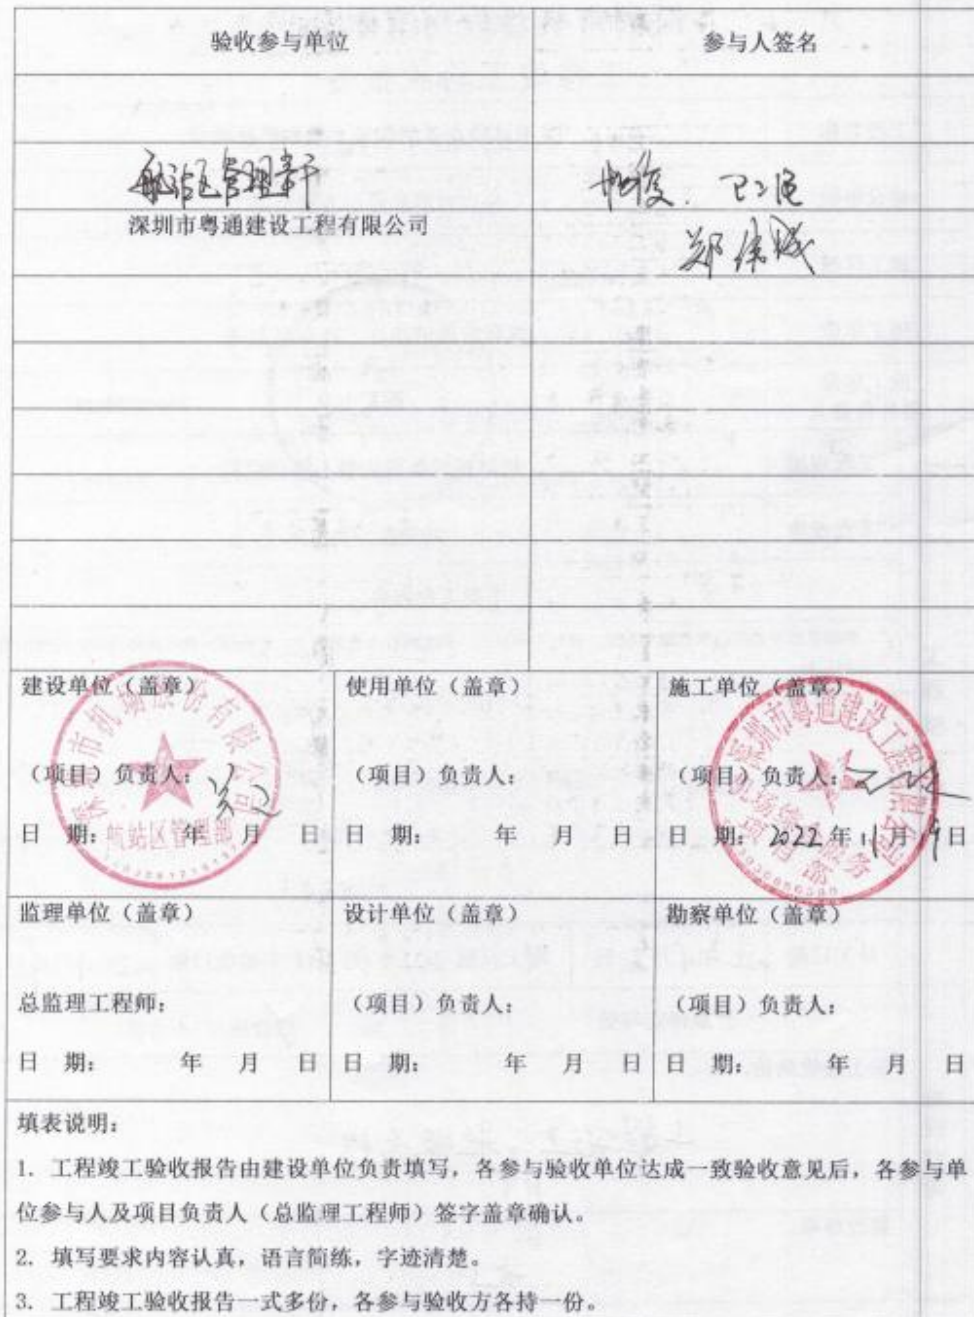 验收参与单位 参与人签名
航站区管理部
深圳市粤通建设工程有限公司
郑伟
建设单位（盖章） 使用单位（盖章） 施工单位（盖章）
深圳市机场股份有限公司
航站区管理部
深圳市粤通建设工程有限公司
（项目）负责人： （项目）负责人： （项目）负责人：
日 期： 年 月 日 日 期： 年 月 日 日 期：2022年11月19日
监理单位（盖章） 设计单位（盖章） 勘察单位（盖章）
总监理工程师： （项目）负责人： （项目）负责人：
日 期： 年 月 日 日 期： 年 月 日 日 期： 年 月 日
填表说明：
1. 工程竣工验收报告由建设单位负责填写，各参与验收单位达成一致验收意见后，各参与单
位参与人及项目负责人（总监理工程师）签字盖章确认。
2. 填写要求内容认真，语言简练，字迹清楚。
3. 工程竣工验收报告一式多份，各参与验收方各持一份。